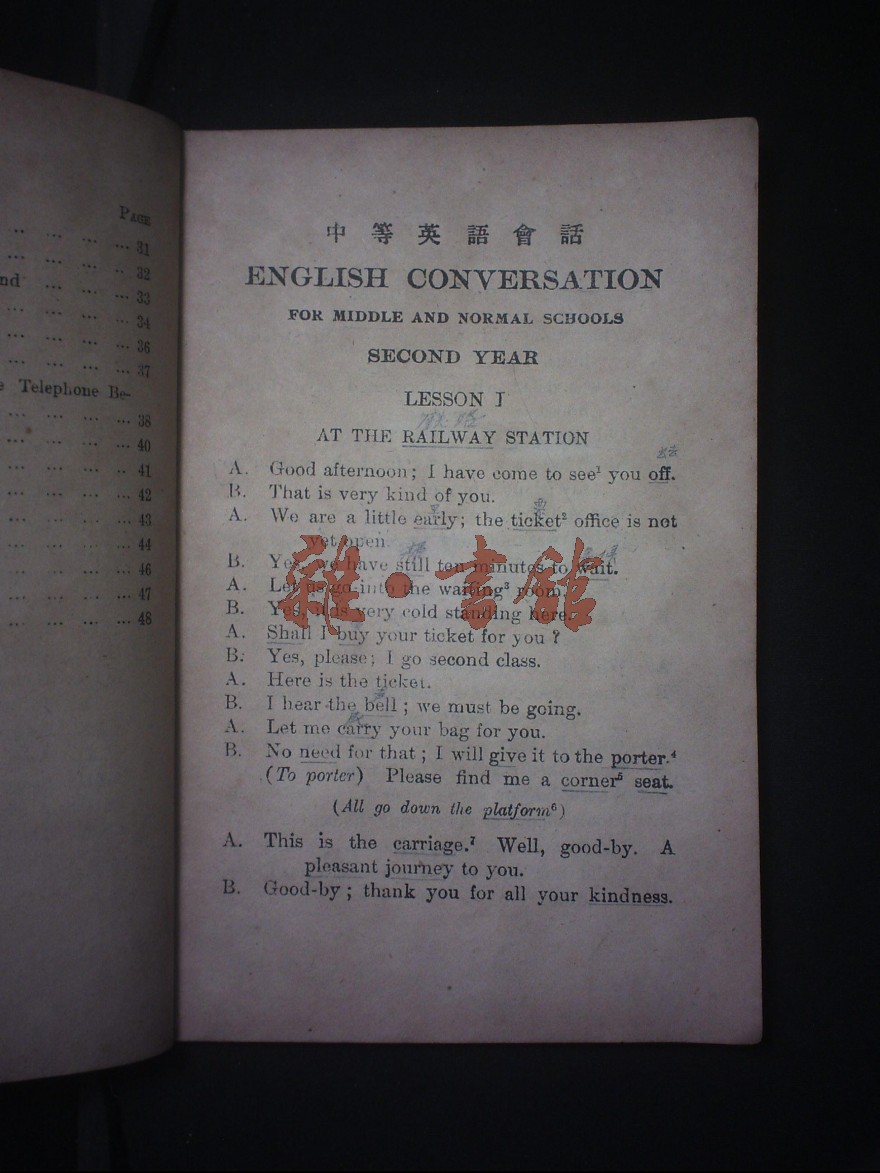 PAGE
31
32
nd 33
34
36
37
e Telephone Be-
38
40
41
42
43
44
46
47
48
中等英語會話
ENGLISH CONVERSATION
FOR MIDDLE AND NORMAL SCHOOLS
SECOND YEAR
LESSON I
AT THE RAILWAY STATION
A. Good afternoon; I have come to see¹ you off.
B. That is very kind of you.
A. We are a little early; the ticket² office is not
yet open.
B. Yes, we have still ten minutes to wait.
A. Let us go into the waiting³ room.
B. Yes, it is very cold standing here.
A. Shall I buy your ticket for you?
B. Yes, please; I go second class.
A. Here is the ticket.
B. I hear the bell; we must be going.
A. Let me carry your bag for you.
B. No need for that; I will give it to the porter.⁴
(To porter) Please find me a corner⁵ seat.
(All go down the platform⁶)
A. This is the carriage.⁷ Well, good-by. A
pleasant journey to you.
B. Good-by; thank you for all your kindness.
雜·書館